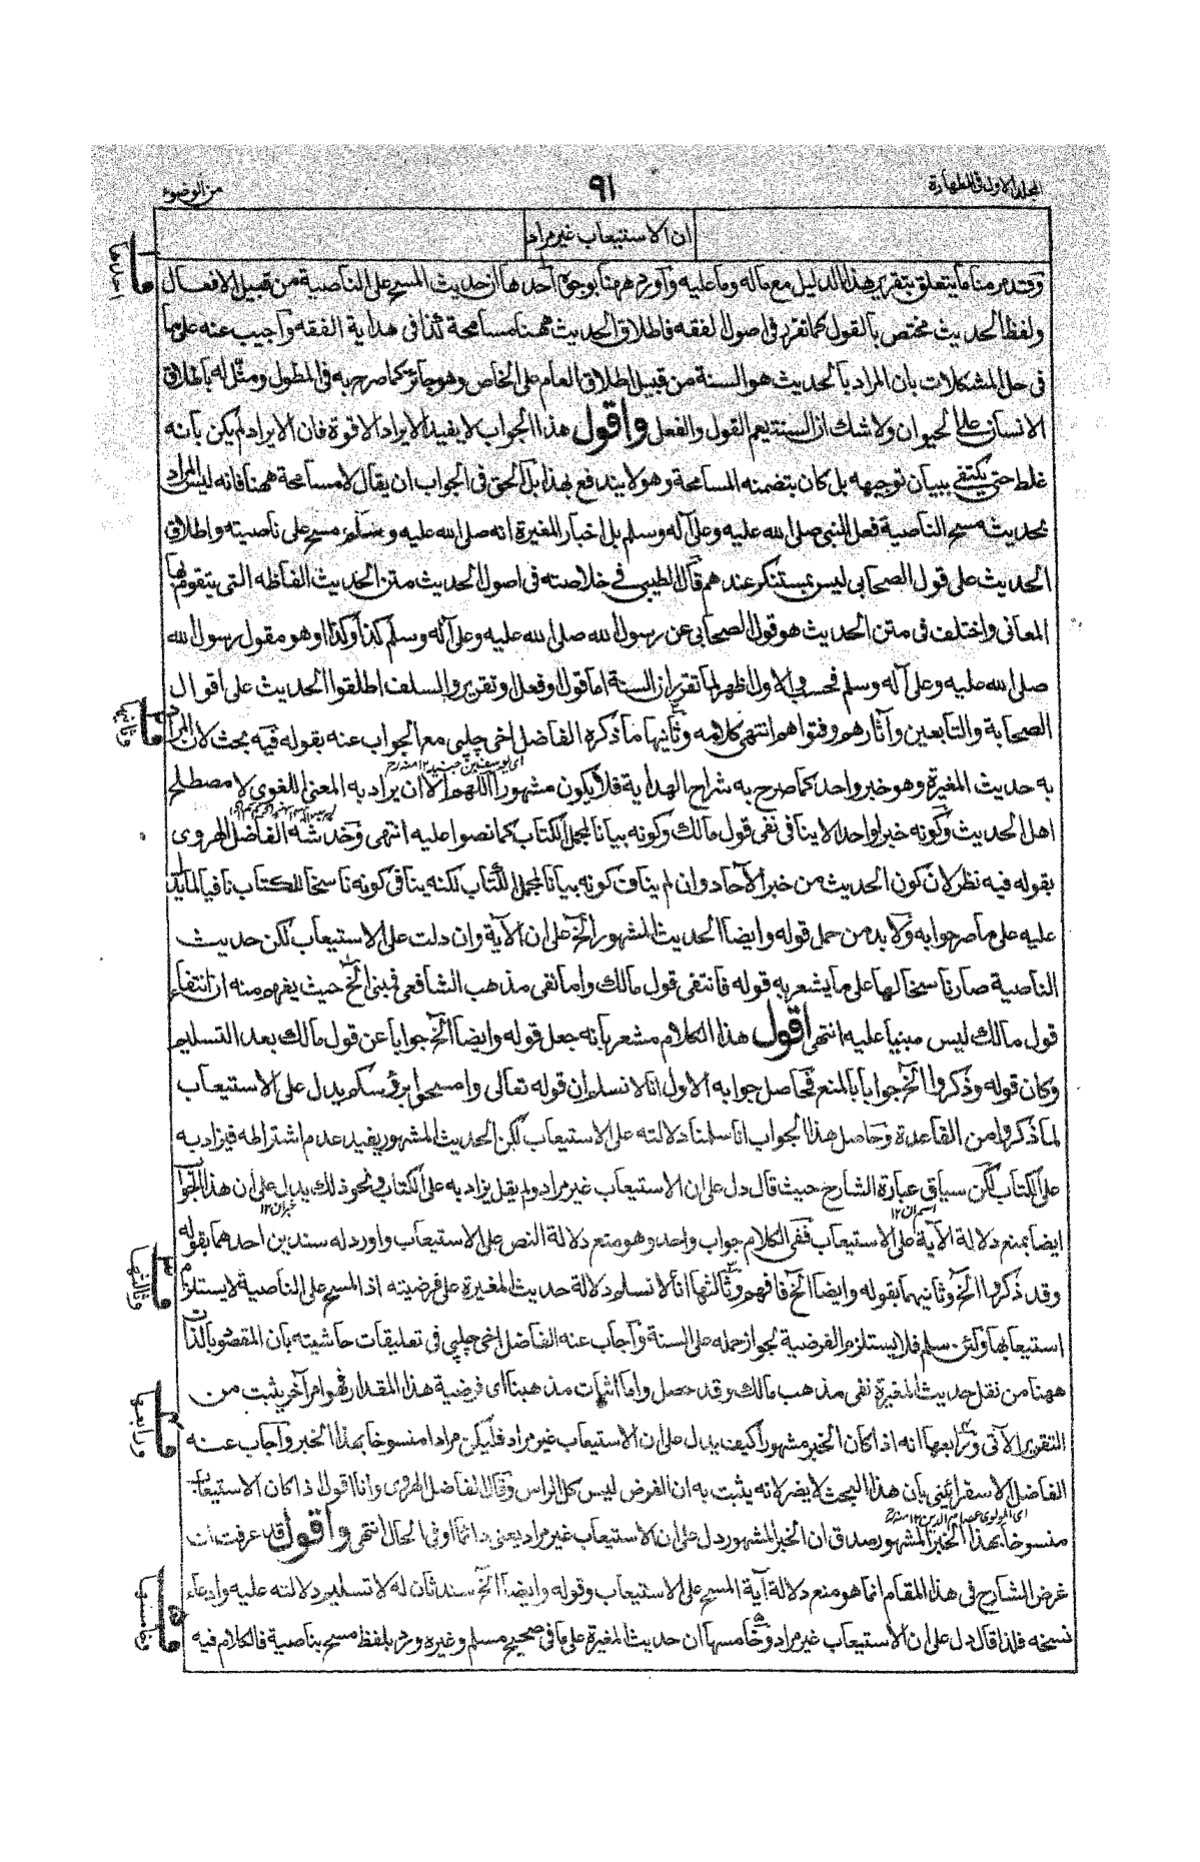 المجلد الاول فى الطهارة
٩١
من الوضوء
ان الاستيعاب غير مراد
وقد مر منا ما يتعلق بتقرير هذا الدليل مع ماله وما عليه وآورد ههنا بوجوه آحدها ان حديث المسح على الناصية من قبيل الافعال
ولفظ الحديث مختص بالقول كما تقرر فى اصول الفقه فاطلاق الحديث ههنا مسامحة كذا فى هداية الفقه وآجيب عنه على ما
فى حل المشكلات بان المراد بالحديث هو السنة من قبيل اطلاق العام على الخاص وهو جائز كما صرح به فى المطول ومثّل له باطلاق
الانسان على الحيوان ولا شك ان السنة يعم القول والفعل واقول هذا الجواب لا يفيد الايراد الا قوة فان الايراد لم يكن بانه
غلط حتى يكتفى ببيان توجيهه بل كان بتضمنه المسامحة وهو لا يندفع بهذا بل الحق فى الجواب ان يقال لا مسامحة ههنا فانه ليس المراد
بحديث مسح الناصية فعل النبى صلى الله عليه وعلى آله وسلم بل اخبار المغيرة انه صلى الله عليه وسلم مسح على ناصيته واطلاق
الحديث على قول الصحابى ليس بمستنكر عندهم قال الطيبى فى خلاصته فى اصول الحديث متن الحديث الفاظه التى يتقوم بها
المعانى واختلف فى متن الحديث هو قول الصحابى عن رسول الله صلى الله عليه وعلى آله وسلم كذا وكذا او هو مقول رسول الله
صلى الله عليه وعلى آله وسلم فحسب والاول اظهر لما تقرر ان السنة اما قول او فعل او تقرير والسلف اطلقوا الحديث على اقوال
الصحابة والتابعين وآثارهم وفتواهم انتهى كلامه وثانيها ما ذكره الفاضل اخى چلپى مع الجواب عنه بقوله فيه بحث لان المراد
اى يوسف بن جنيد ١٢ منه رح
به حديث المغيرة وهو خبر واحد كما صرح به شراح الهداية فلا يكون مشهورا اللهم الا ان يراد به المعنى اللغوى لا مصطلح
اهل الحديث وكونه خبرا واحدا لا ينافى نفى قول مالك وكونه بيانا لمجمل الكتاب كما نصوا عليه انتهى وخدشه الفاضل الهروى
بقوله فيه نظر لان كون الحديث من خبر الآحاد وان لم يناف كونه بيانا لمجمل الكتاب لكنه ينافى كونه ناسخا للكتاب نافيا لما يدل
عليه على ما صر جوابه ولا بد من حمل قوله وايضا الحديث المشهور الخ على ان الآية وان دلت على الاستيعاب لكن حديث
الناصية صار ناسخا لها على ما يشعر به قوله فانتفى قول مالك واما نفى مذهب الشافعى فبنى الخ حيث يفهم منه ان انتفاء
قول مالك ليس مبنيا عليه انتهى اقول هذا الكلام مشعر بانه جعل قوله وايضا الخ جوابا عن قول مالك بعد التسليم
وكان قوله وذكروا الخ جوابا بالمنع فحاصل جوابه الاول انا لا نسلم ان قوله تعالى وامسحوا برؤسكم يدل على الاستيعاب
لما ذكروا من القاعدة وحاصل هذا الجواب انا سلمنا دلالته على الاستيعاب لكن الحديث المشهور يفيد عدم اشتراطه فيزاد به
على الكتاب لكن سياق عبارة الشارح حيث قال دل على ان الاستيعاب غير مراد ولم يقل يزاد به على الكتاب ونحو ذلك يدل على ان هذا الجواب
اسم ان ١٢
خبر ان ١٢
ايضا بمنع دلالة الآية على الاستيعاب ففى الكلام جواب واحد وهو منع دلالة النص على الاستيعاب واورد له سندين احدهما بقوله
وقد ذكروا الخ وثانيهما بقوله وايضا الخ فافهم وثالثها انا لا نسلم دلالة حديث المغيرة على فرضيته اذ المسح على الناصية لا يستلزم
استيعابها ولئن سلم فلا يستلزم الفرضية لجواز حمله على السنة وآجاب عنه الفاضل اخى چلپى فى تعليقات حاشيته بان المقصود بالذات
ههنا من نقل حديث المغيرة نفى مذهب مالك وقد حصل واما اثبات مذهبنا اى فرضية هذا المقدار فهو امر آخر يثبت من
التقرير الآتى ورابعها انه اذا كان الخبر مشهورا كيف يدل على ان الاستيعاب غير مراد فليكن مرادا منسوخا بهذا الخبر وآجاب عنه
الفاضل الاسفرائينى بان هذا البحث لا يضر لانه يثبت به ان الفرض ليس كل الراس وقال الفاضل الهروى وانا اقول اذا كان الاستيعاب
اى المولوى عصام الدين ١٢ منه رح
منسوخا بهذا الخبر المشهور صدق ان الخبر المشهور دل على ان الاستيعاب غير مراد يعنى دائما او فى الحال انتهى واقول قد عرفت ان
غرض الشارح فى هذا المقام انما هو منع دلالة آية المسح على الاستيعاب وقوله وايضا الخ سند ثان له لا تسليم دلالته عليه وادعاء
نسخه فلذا قال دل على ان الاستيعاب غير مراد وخامسها ان حديث المغيرة على ما فى صحيح مسلم وغيره ورد بلفظ مسح بناصية فالكلام فيه
احدها
وثانيها
وثالثها
ورابعها
وخامسها